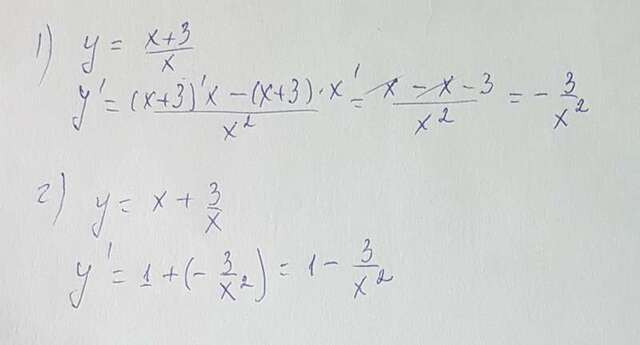 1) y = \frac{x+3}{x}
y' = \frac{(x+3)'x - (x+3) \cdot x'}{x^2} = \frac{x - x - 3}{x^2} = -\frac{3}{x^2}
2) y = x + \frac{3}{x}
y' = 1 + (-\frac{3}{x^2}) = 1 - \frac{3}{x^2}